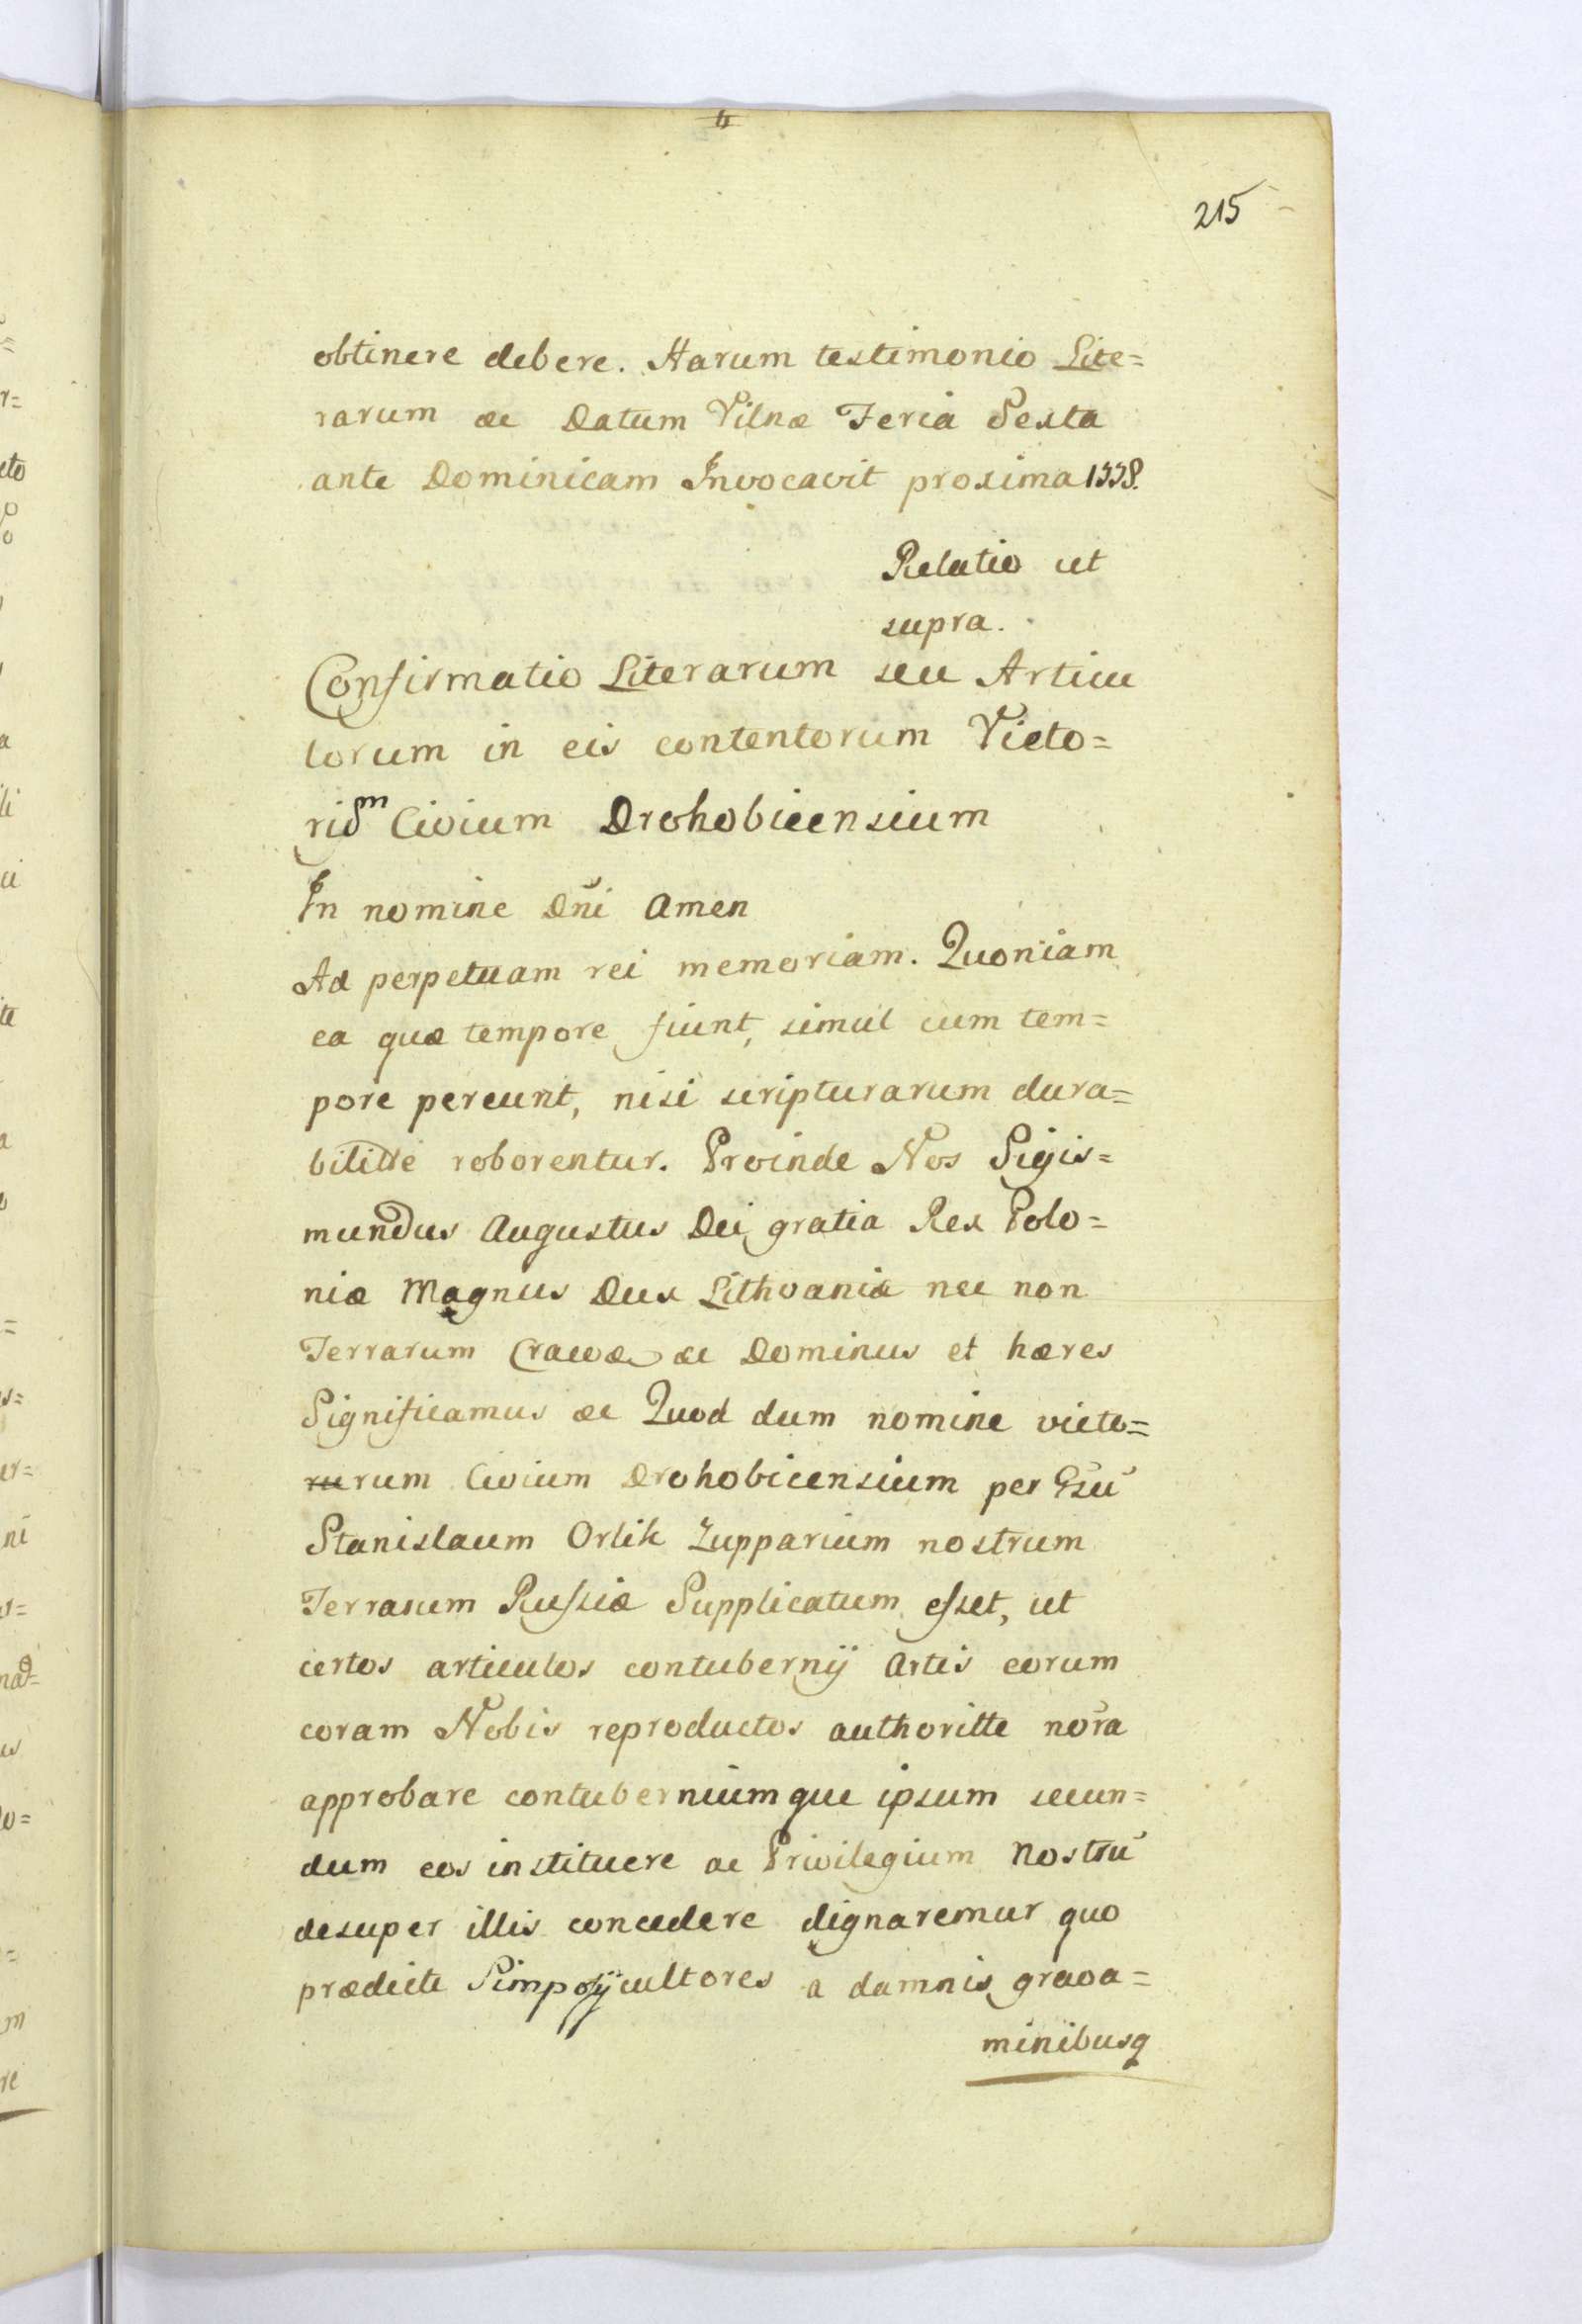 215
obtinere debere. Harum testimonio Lite=
rarum &c Datum Vilnæ Feria Sexta
ante Dominicam Invocavit proxima 1558.
Relatio ut
supra.
Confirmatio Literarum seu Articu
lorum in eis contentorum Victo=
Civium Drohobicensium
In nomine Dn̄i Amen
Ad perpetuam rei memoriam. Quoniam
ea quæ tempore fiunt, simul cum tem=
pore pereunt, nisi scripturarum dura=
bilitte roborentur. Proinde Nos Sigis=
mundus Augustus Dei gratia Rex Polo=
niæ Magnus Dux Lithvaniæ nec non
Terrarum Cracoæ &c Dominus et hæres
Significamus &c Quod dum nomine victo=
rurum Civium Drohobicensium per Gsū
Stanislaum Orlik Zupparium nostrum
Terrarum Russiæ Supplicatum esset, ut
certos articulos contubernij Artis eorum
coram Nobis reproductos authoritte nōra
approbare contuberniumque ipsum secun=
dum eos instituere ac Privilegium Nostrū
desuper illis concedere dignaremur quo
prædicti Simposijcultores a damnis grava=
minibusq